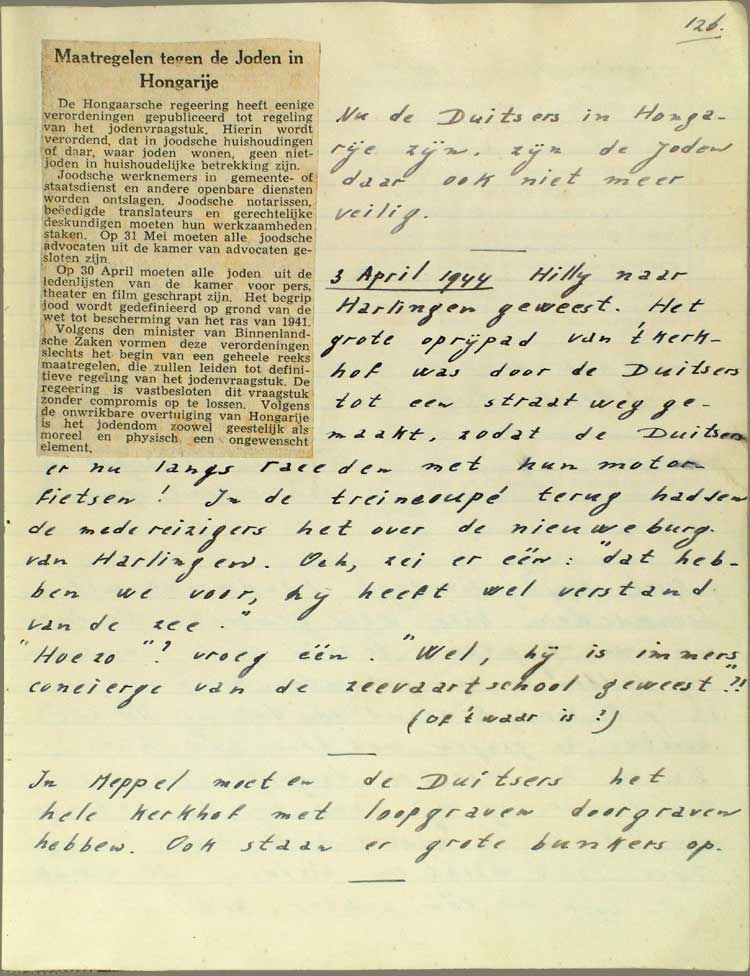 126.
Maatregelen tegen de Joden in
Hongarije
De Hongaarsche regeering heeft eenige
verordeningen gepubliceerd tot regeling
van het jodenvraagstuk. Hierin wordt
verordend, dat in joodsche huishoudingen
of daar, waar joden wonen, geen niet-
joden in huishoudelijke betrekking zijn.
Joodsche werknemers in gemeente- of
staatsdienst en andere openbare diensten
worden ontslagen. Joodsche notarissen,
beëedigde translateurs en gerechtelijke
deskundigen moeten hun werkzaamheden
staken. Op 31 Mei moeten alle joodsche
advocaten uit de kamer van advocaten ge-
sloten zijn.
Op 30 April moeten alle joden uit de
ledenlijsten van de kamer voor pers,
theater en film geschrapt zijn. Het begrip
jood wordt gedefinieerd op grond van de
wet tot bescherming van het ras van 1941.
Volgens den minister van Binnenland-
sche Zaken vormen deze verordeningen
slechts het begin van een geheele reeks
maatregelen, die zullen leiden tot defini-
tieve regeling van het jodenvraagstuk. De
regeering is vastbesloten dit vraagstuk
zonder compromis op te lossen. Volgens
de onwrikbare overtuiging van Hongarije
is het jodendom zoowel geestelijk als
moreel en physisch een ongewenscht
element.
Nu de Duitsers in Honga-
rije zijn, zijn de Joden
daar ook niet meer
veilig.
3 April 1944 Hilly naar
Harlingen geweest. Het
grote oprijpad van 't kerk-
hof was door de Duitsers
tot een straatweg ge-
maakt, zodat de Duitsers
er nu langs raceeden met hun motor-
fietsen! In de treincoupé terug hadden
de medereizigers het over de nieuwe burg.
van Harlingen. Och, zei er één: "dat heb-
ben we voor, hij heeft wel verstand
van de zee."
"Hoezo"? vroeg één. "Wel, hij is immers
concierge van de zeevaartschool geweest"?!
(of 't waar is?)
In Meppel moeten de Duitsers het
hele kerkhof met loopgraven doorgraven
hebben. Ook staan er grote bunkers op.